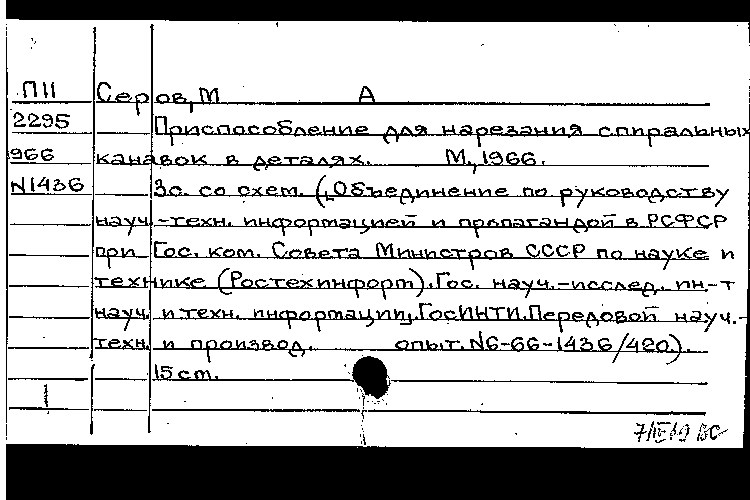 П11 Серов, М А
2295 Приспособление для нарезания спиральных
966 канавок в деталях. М., 1966.
N1436 3с. со схем. („Объединение по руководству
науч.-техн. информацией и пропагандой в РСФСР
при Гос. ком. Совета Министров СССР по науке и
технике (Ростехинформ). Гос. науч.-исслед. ин-т
науч. и техн. информации, ГосИНТИ. Передовой науч.-
техн. и производ. опыт. N6-66-1436/420).
15 cm.
1